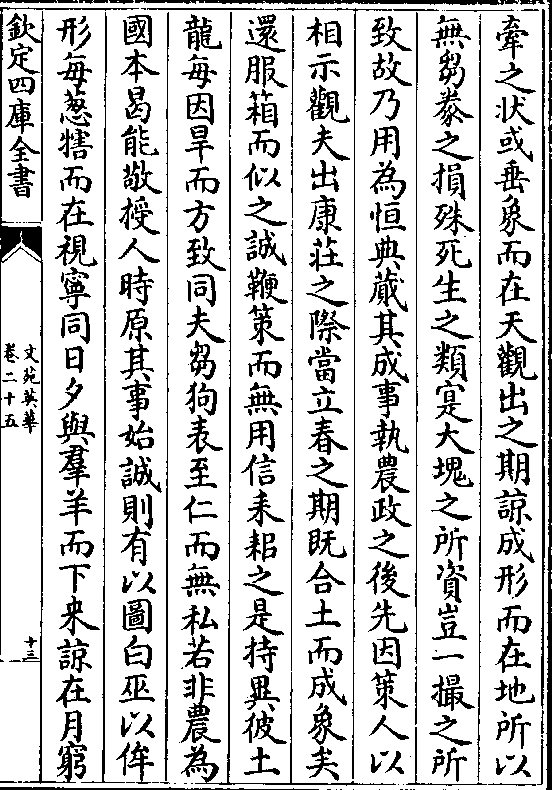 牽之状或垂象而在天觀出之期諒成形而在地所以
無芻豢之損殊死生之類寔大塊之所資豈一撮之所
致故乃用為恒典蕆其成事執農政之後先因策人以
相示觀夫出康莊之際當立春之期既合土而成象矣
還服箱而似之誠鞭策而無用信耒耜之是持異彼土
龍每因旱而方致同夫芻狗表至仁而無私若非農為
國本曷能敬授人時原其事始誠則有以圖白巫以侔
形每蔥犗而在視寧同日夕與羣羊而下來諒在月窮
欽定四庫全書
文苑英華
卷二十五
十三